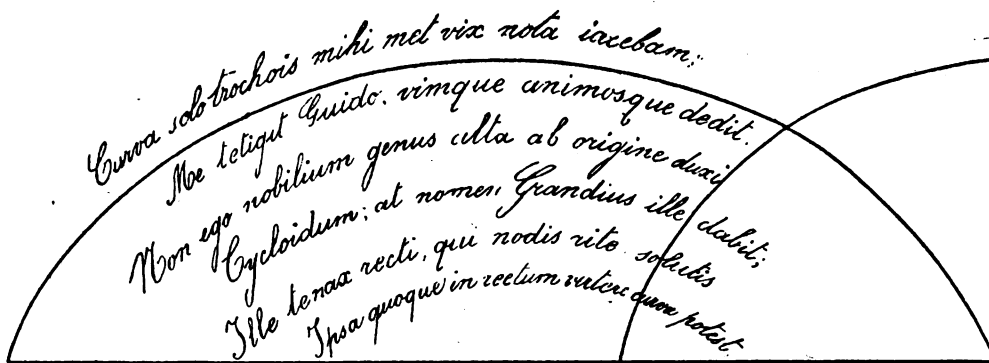 Curva solo trochois mihi met vix nota iacebam;
Me tetigit Guido, vimque animosque dedit.
Non ego nobilium genus alta ab origine duxi
Cycloidum; at nomen, Grandius ille dabit;
Ille tenax recti, qui nodis rite solutis
Ipsa quoque in rectum vertere curva potest.